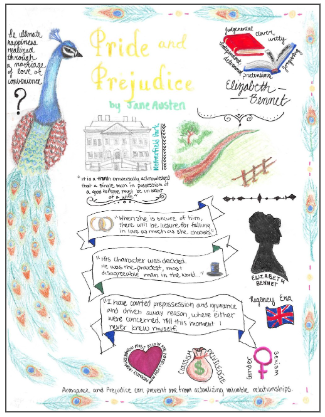 Is ultimate
happiness
realized
through
a marriage
of love or
convenience
?
Pride and
Prejudice
by Jane Austen
judgemental
clever
witty
independent
prejudiced
Elizabeth
Bennet
Netherfield
"It is a truth universally acknowledged
that a single man in possession of
a good fortune must be in want
of a wife."
"When she is secure of him,
there will be leisure for falling
in love as much as she chooses."
"His character was decided.
He was the proudest, most
disagreeable man in the world..."
"I have courted prepossession and ignorance
and driven away reason, where either
were concerned. Till this moment I
never knew myself."
ELIZABETH
BENNET
Regency Era
Gender
Arrogance and Prejudice can prevent one from establishing valuable relationships.